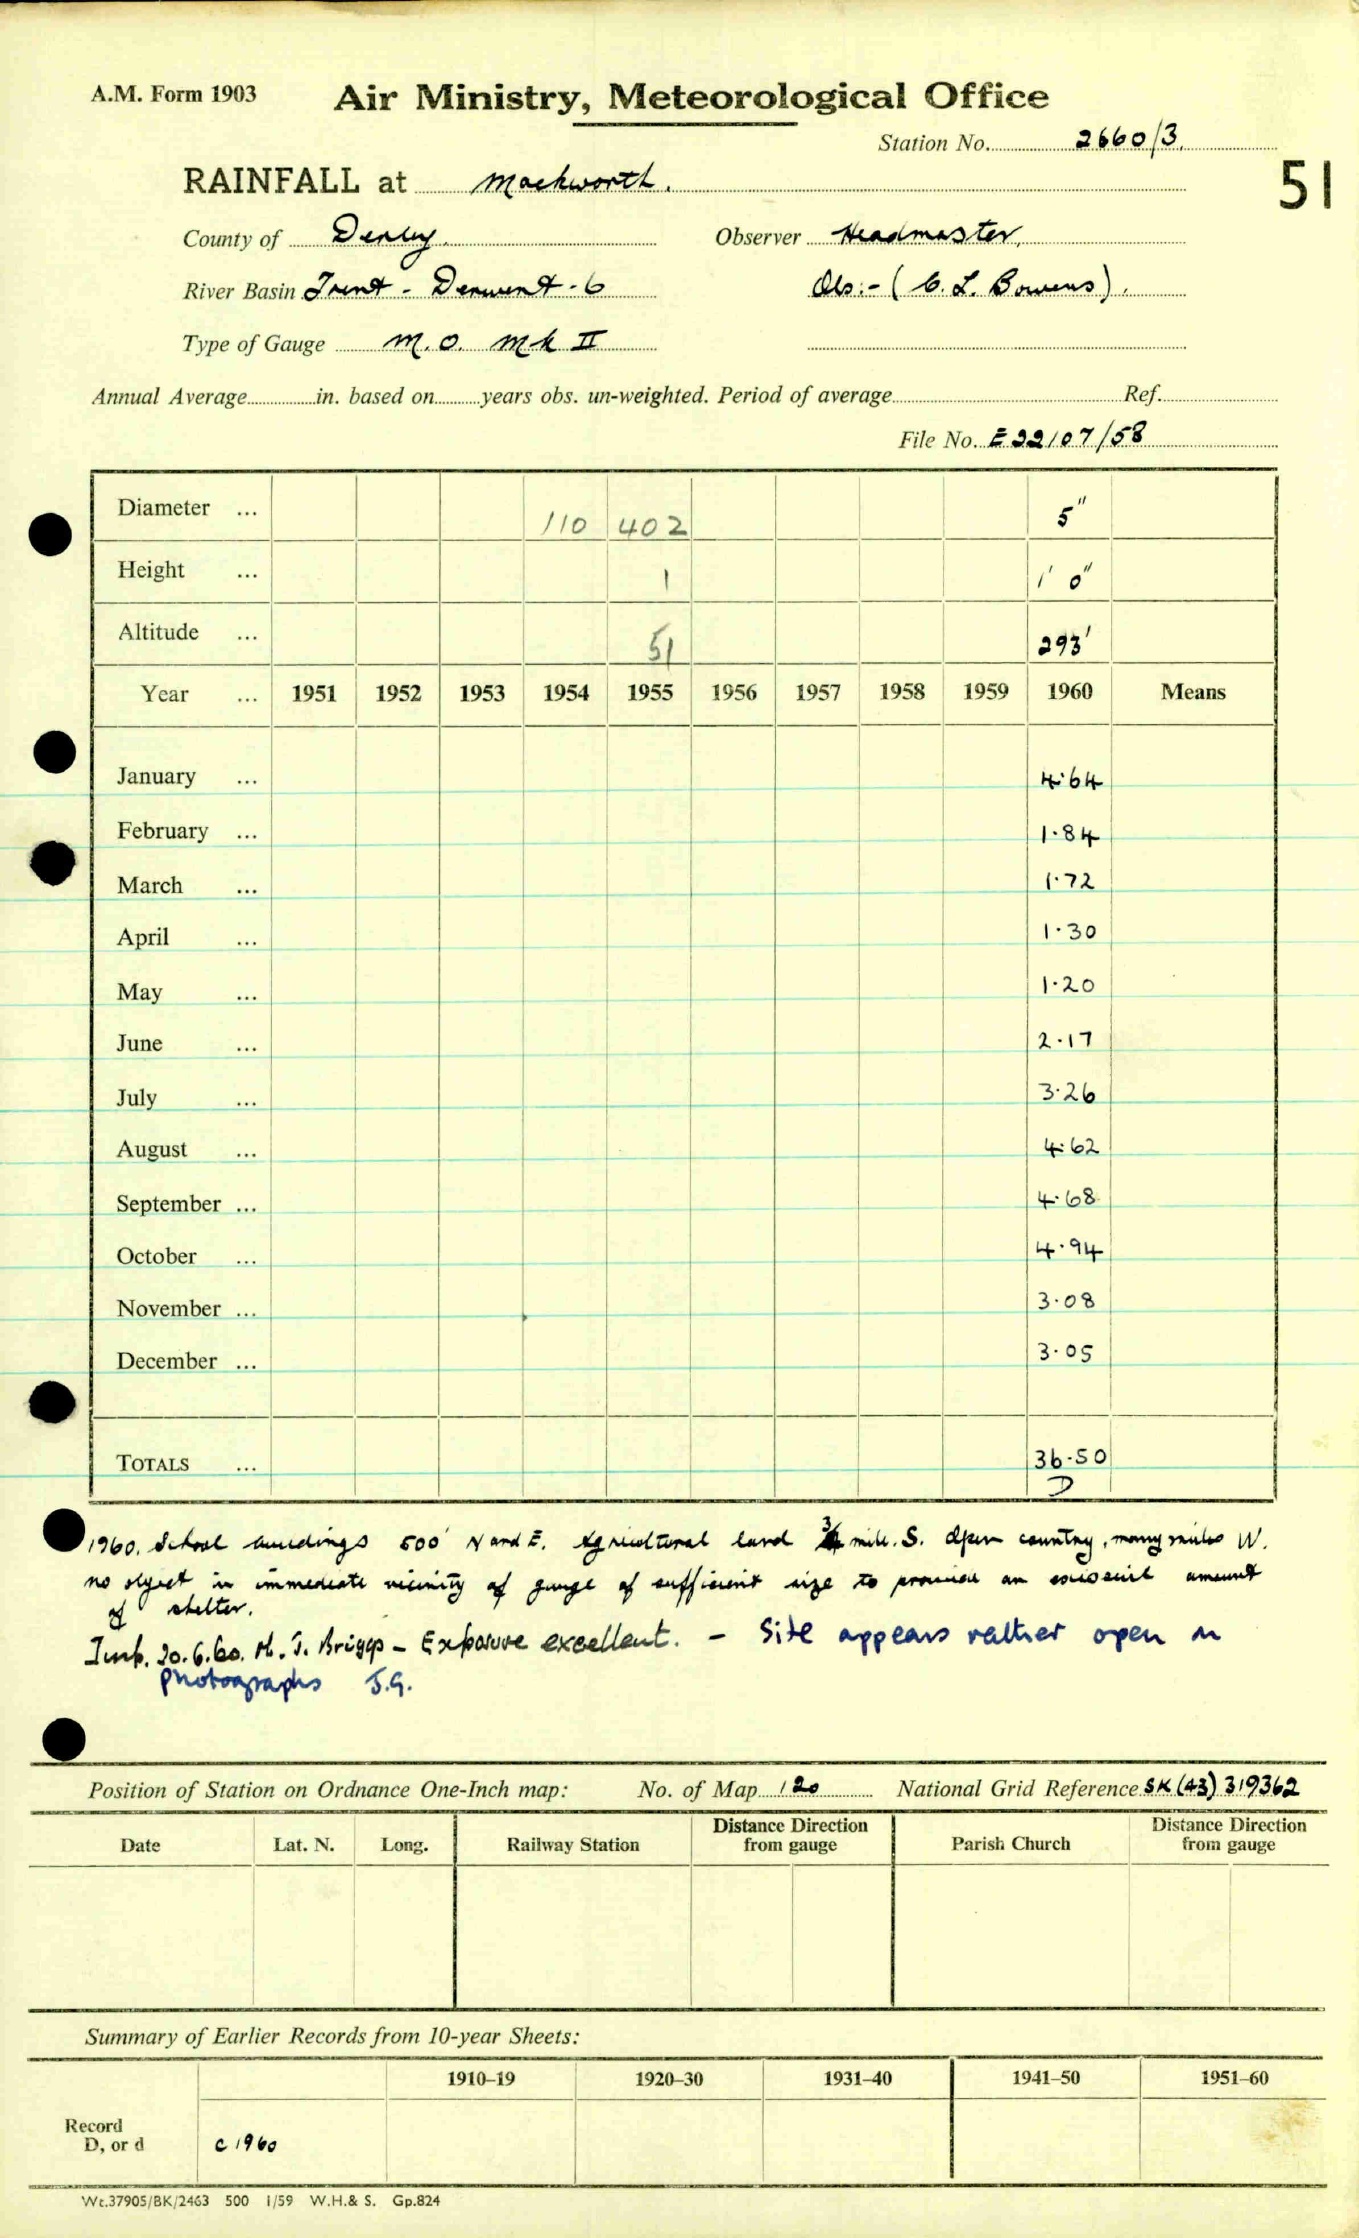 A.M. Form 1903 Air Ministry, Meteorological Office
Station No. 2660/3.
51
RAINFALL at Mackworth.
County of Derby. Observer Headmaster,
River Basin Trent - Derwent - 6 Obs:- (C. L. Bowens).
Type of Gauge M.O. Mk II
Annual Average in. based on years obs. un-weighted. Period of average Ref.
File No. E22107/58
Diameter ... 110 402 5"
Height ... 1 1' 0"
Altitude ... 51 293'
Year ... 1951 1952 1953 1954 1955 1956 1957 1958 1959 1960 Means
January ... 4.64
February ... 1.84
March ... 1.72
April ... 1.30
May ... 1.20
June ... 2.17
July ... 3.26
August ... 4.62
September ... 4.68
October ... 4.94
November ... 3.08
December ... 3.05
TOTALS ... 36.50
D
1960. School buildings 500' N and E. Agricultural land 3/4 mile. S. Open country, many miles W.
no object in immediate vicinity of gauge of sufficient size to provide an excessive amount
of shelter.
Insp. 20.6.60. H. J. Briggs - Exposure excellent. - Site appears rather open in
photographs J.G.
Position of Station on Ordnance One-Inch map: No. of Map 120 National Grid Reference SK (43) 319362
Date Lat. N. Long. Railway Station Distance Direction from gauge Parish Church Distance Direction from gauge
Summary of Earlier Records from 10-year Sheets:
1910–19 1920–30 1931–40 1941–50 1951–60
Record
D, or d c 1960
Wt.37905/BK/2463 500 1/59 W.H.& S. Gp.824